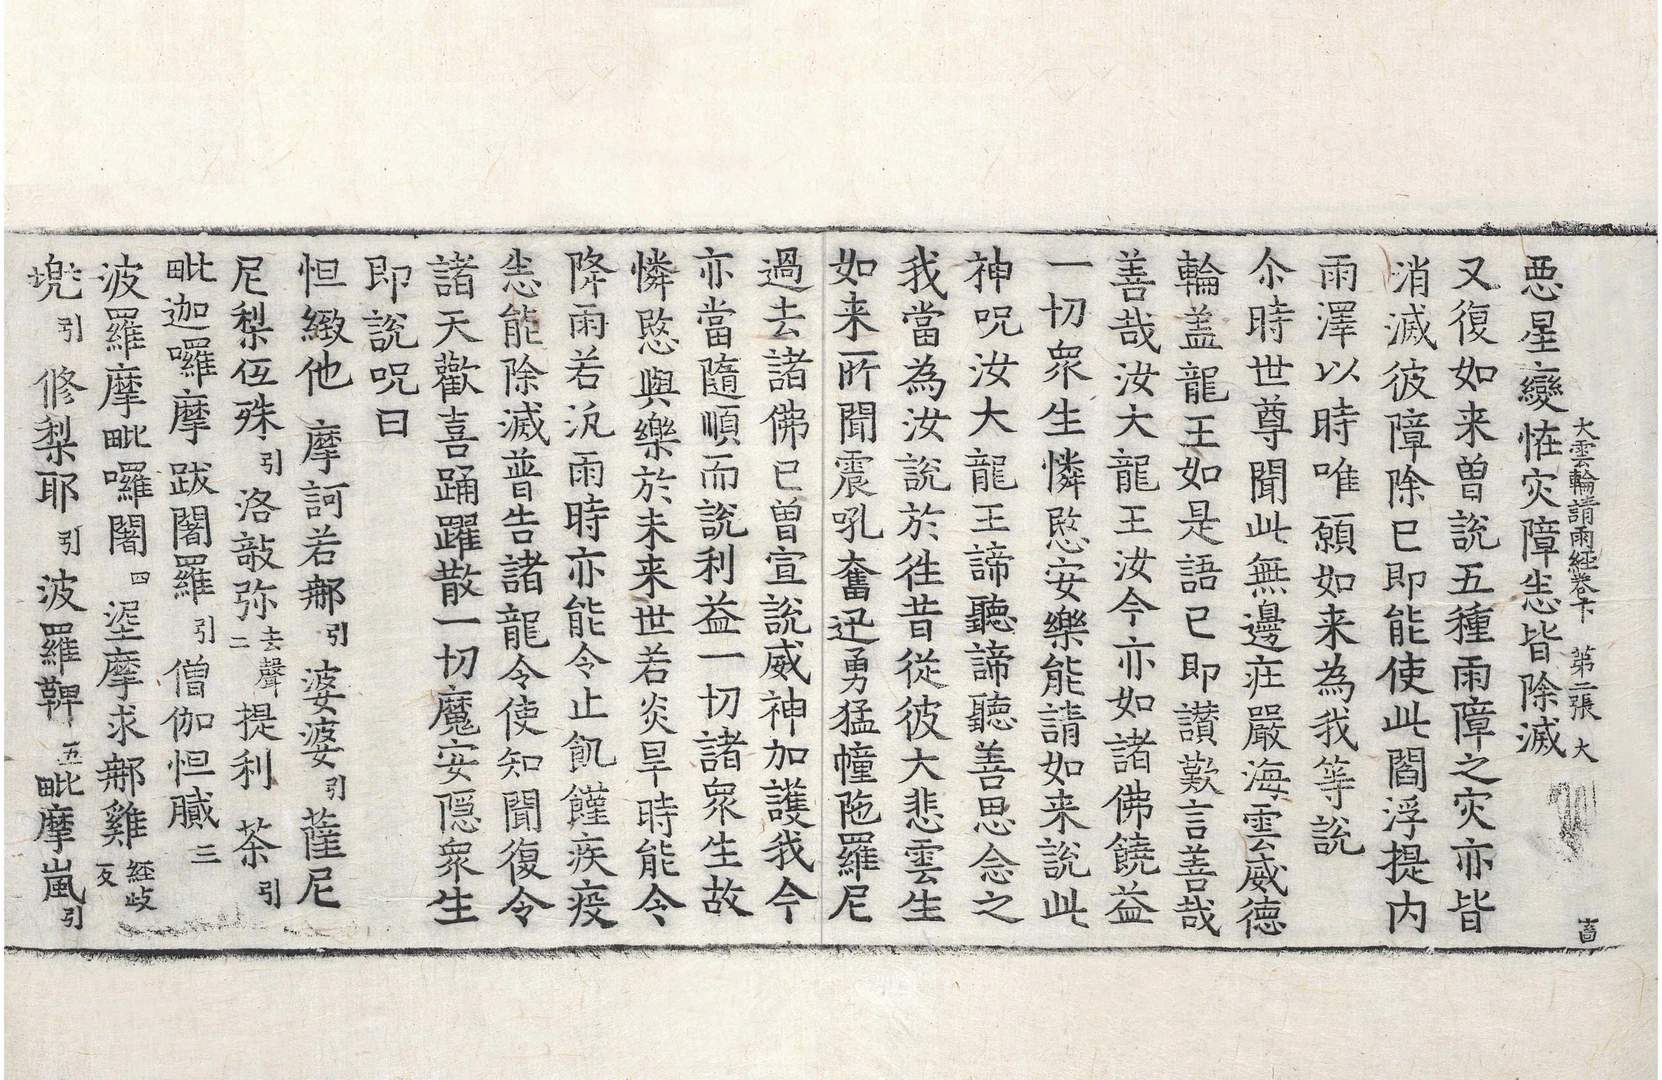 大雲輪請雨經卷下 第二張 大
惡星變恠灾障悉皆除滅
又復如来曾說五種雨障之灾亦皆
消滅彼障除已即能使此閻浮提内
雨澤以時唯願如来為我等說
尒時世尊聞此無邊莊嚴海雲威德
輪盖龍王如是語已即讃歎言善哉
善哉汝大龍王汝今亦如諸佛饒益
一切衆生憐愍安樂能請如来說此
神呪汝大龍王諦聽諦聽善思念之
我當為汝說於徃昔從彼大悲雲生
如来所聞震吼奮迅勇猛幢陁羅尼
過去諸佛已曾宣說威神加護我今
亦當隨順而說利益一切諸衆生故
憐愍與樂於未来世若炎旱時能令
降雨若汎雨時亦能令止飢饉疾疫
悉能除滅普告諸龍令使知聞復令
諸天歡喜踊躍散一切魔安隱衆生
即說呪曰
怛緻他 摩訶若那引 婆婆引 薩尼
尼梨伍殊引 洛敧弥去聲二 提利 荼引
毗迦囉摩 跋闍羅引 僧伽怛膱三
波羅摩毗囉闍四 埿摩求那雞經歧反
兠引 修梨耶引 波羅鞞五 毗摩嵐引